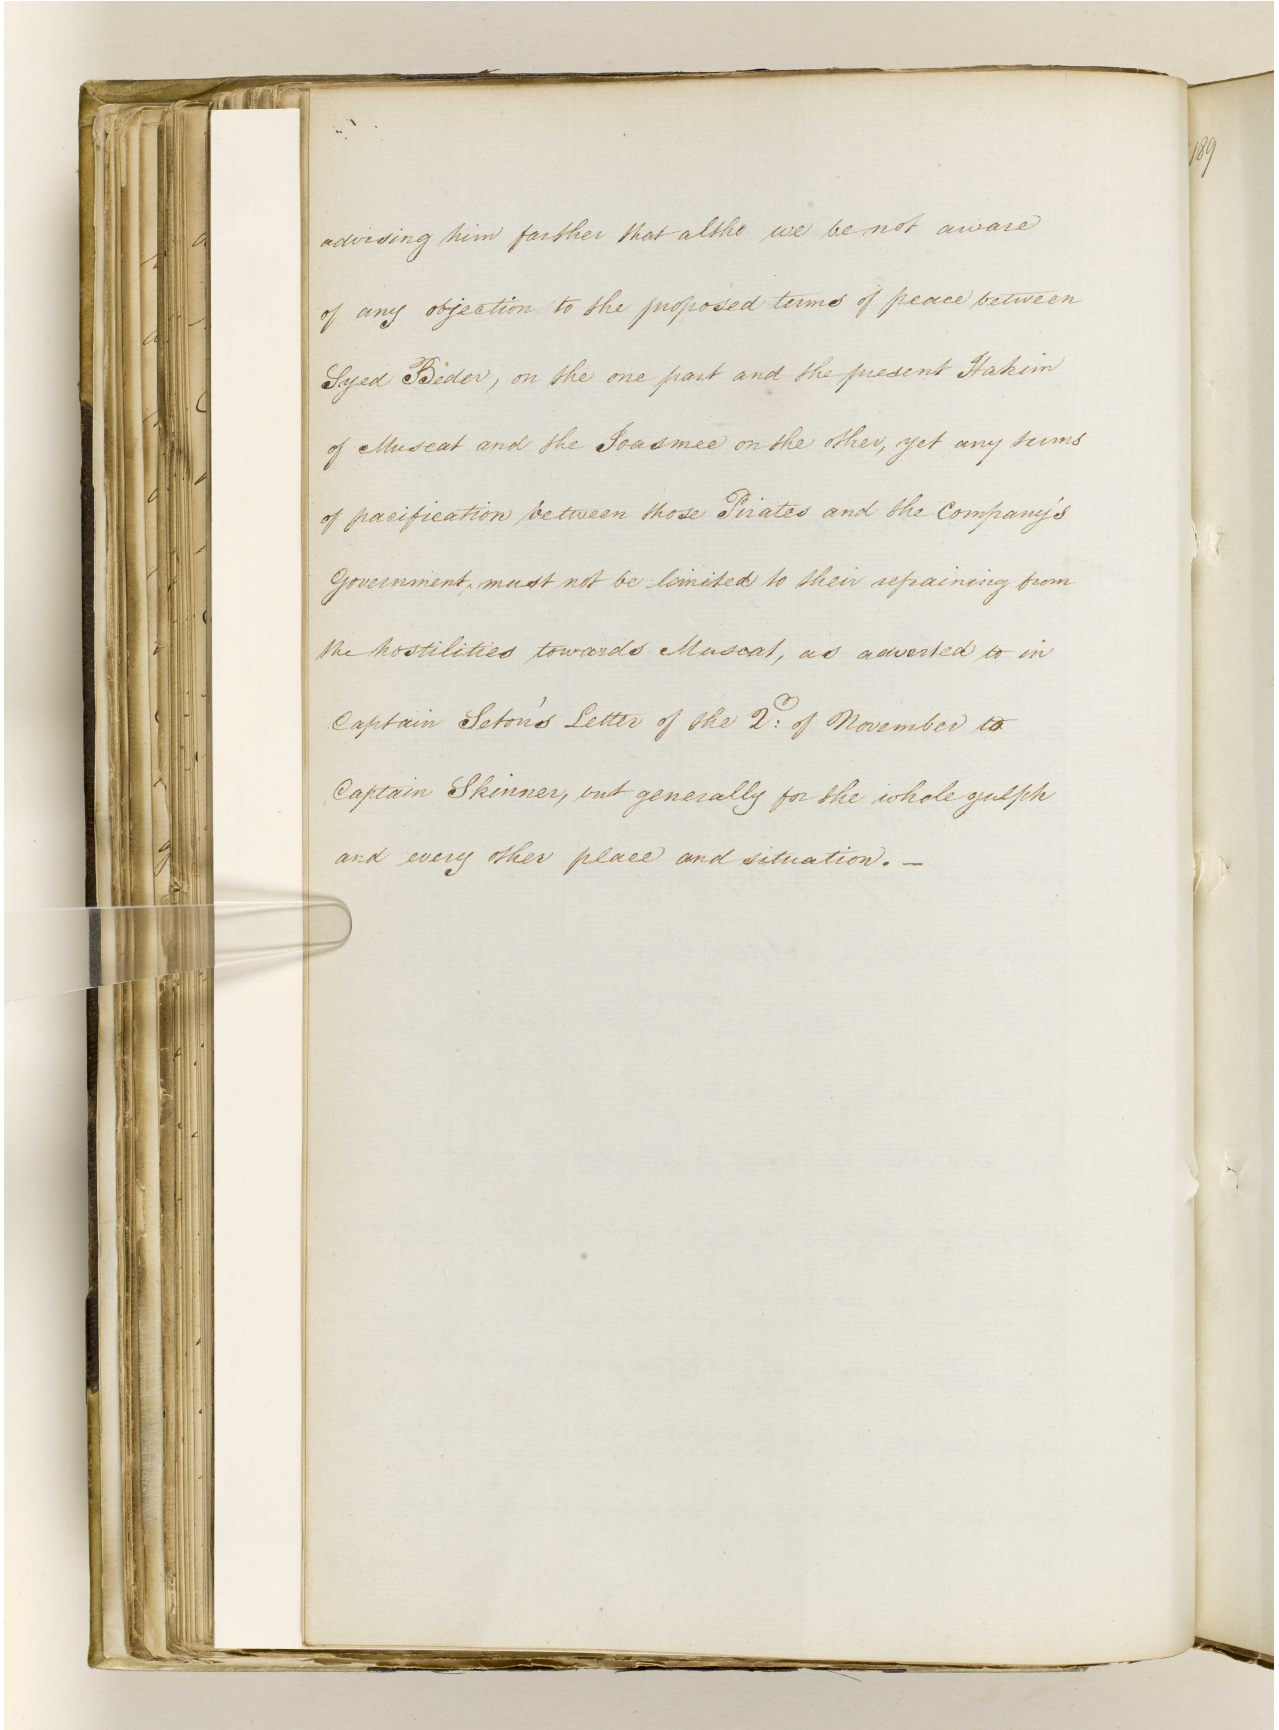 189
advising him farther that altho we be not aware
of any objection to the proposed terms of peace between
Syed Beder, on the one part and the present Hakim
of Muscat and the Joasmee on the other, yet any terms
of pacification between those Pirates and the Company's
Government, must not be limited to their refraining from
the hostilities towards Muscat, as adverted to in
Captain Seton's Letter of the 2d: of November to
Captain Skinner, but generally for the whole gulph
and every other place and situation. —